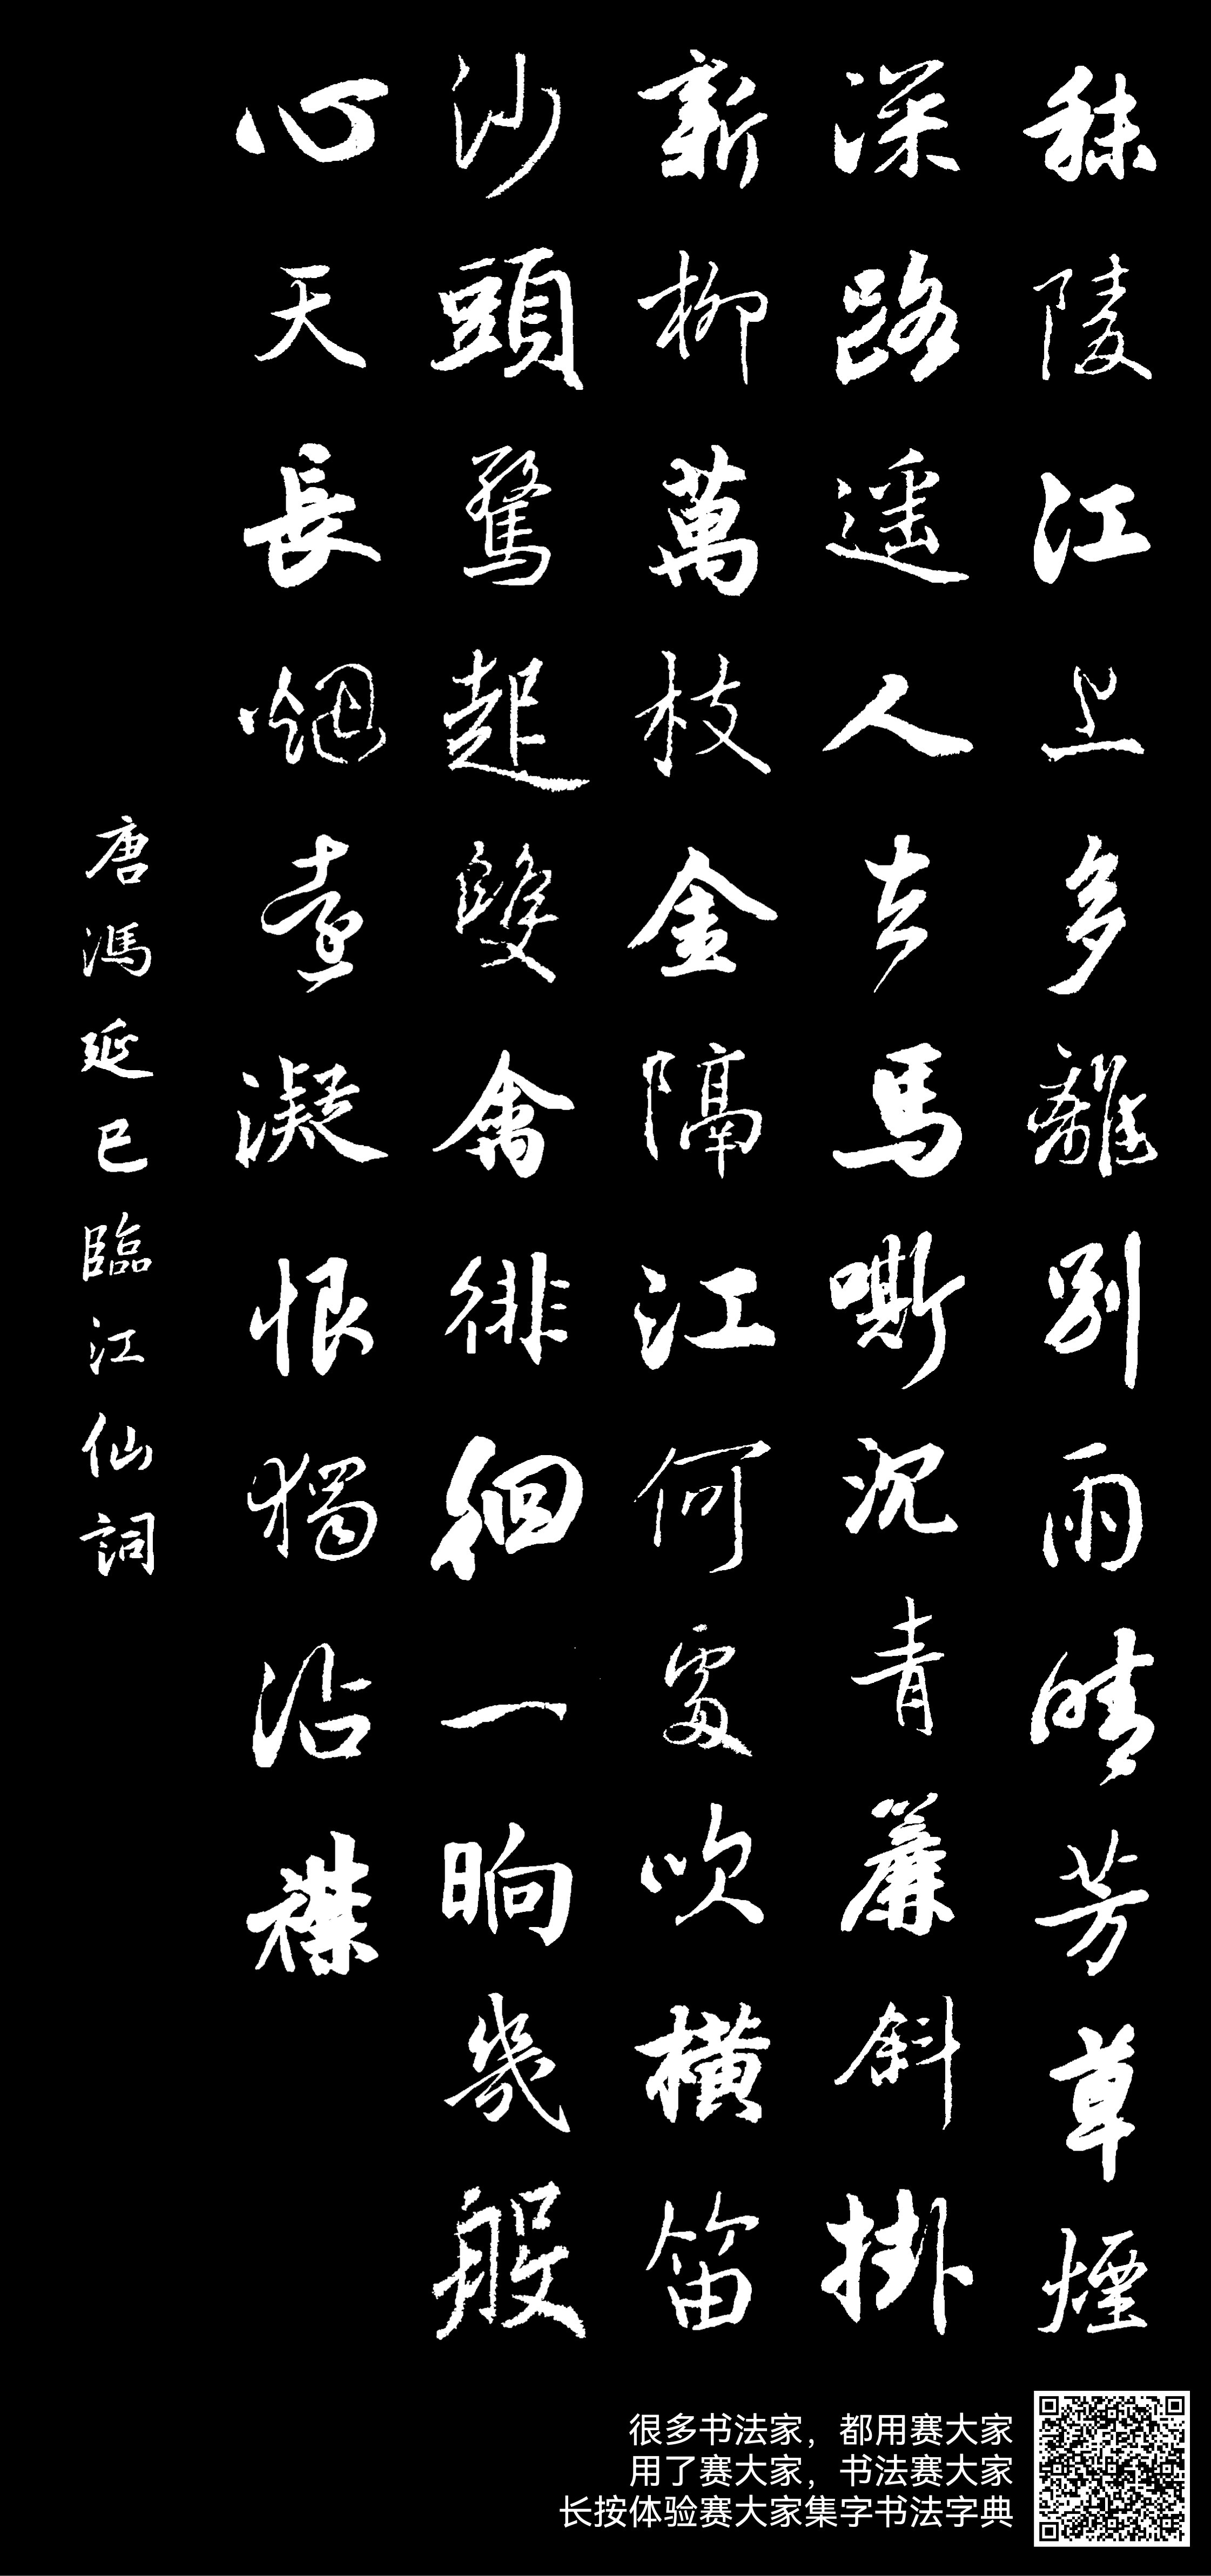 秣陵江上多離別雨晴芳草煙
深路遥人去馬嘶沉青簾斜掛
新柳萬枝金隔江何處吹橫笛
沙頭驚起雙禽徘徊一晌幾般
心天長烟遠凝恨獨沾襟
唐馮延巳臨江仙詞
很多书法家，都用赛大家
用了赛大家，书法赛大家
长按体验赛大家集字书法字典